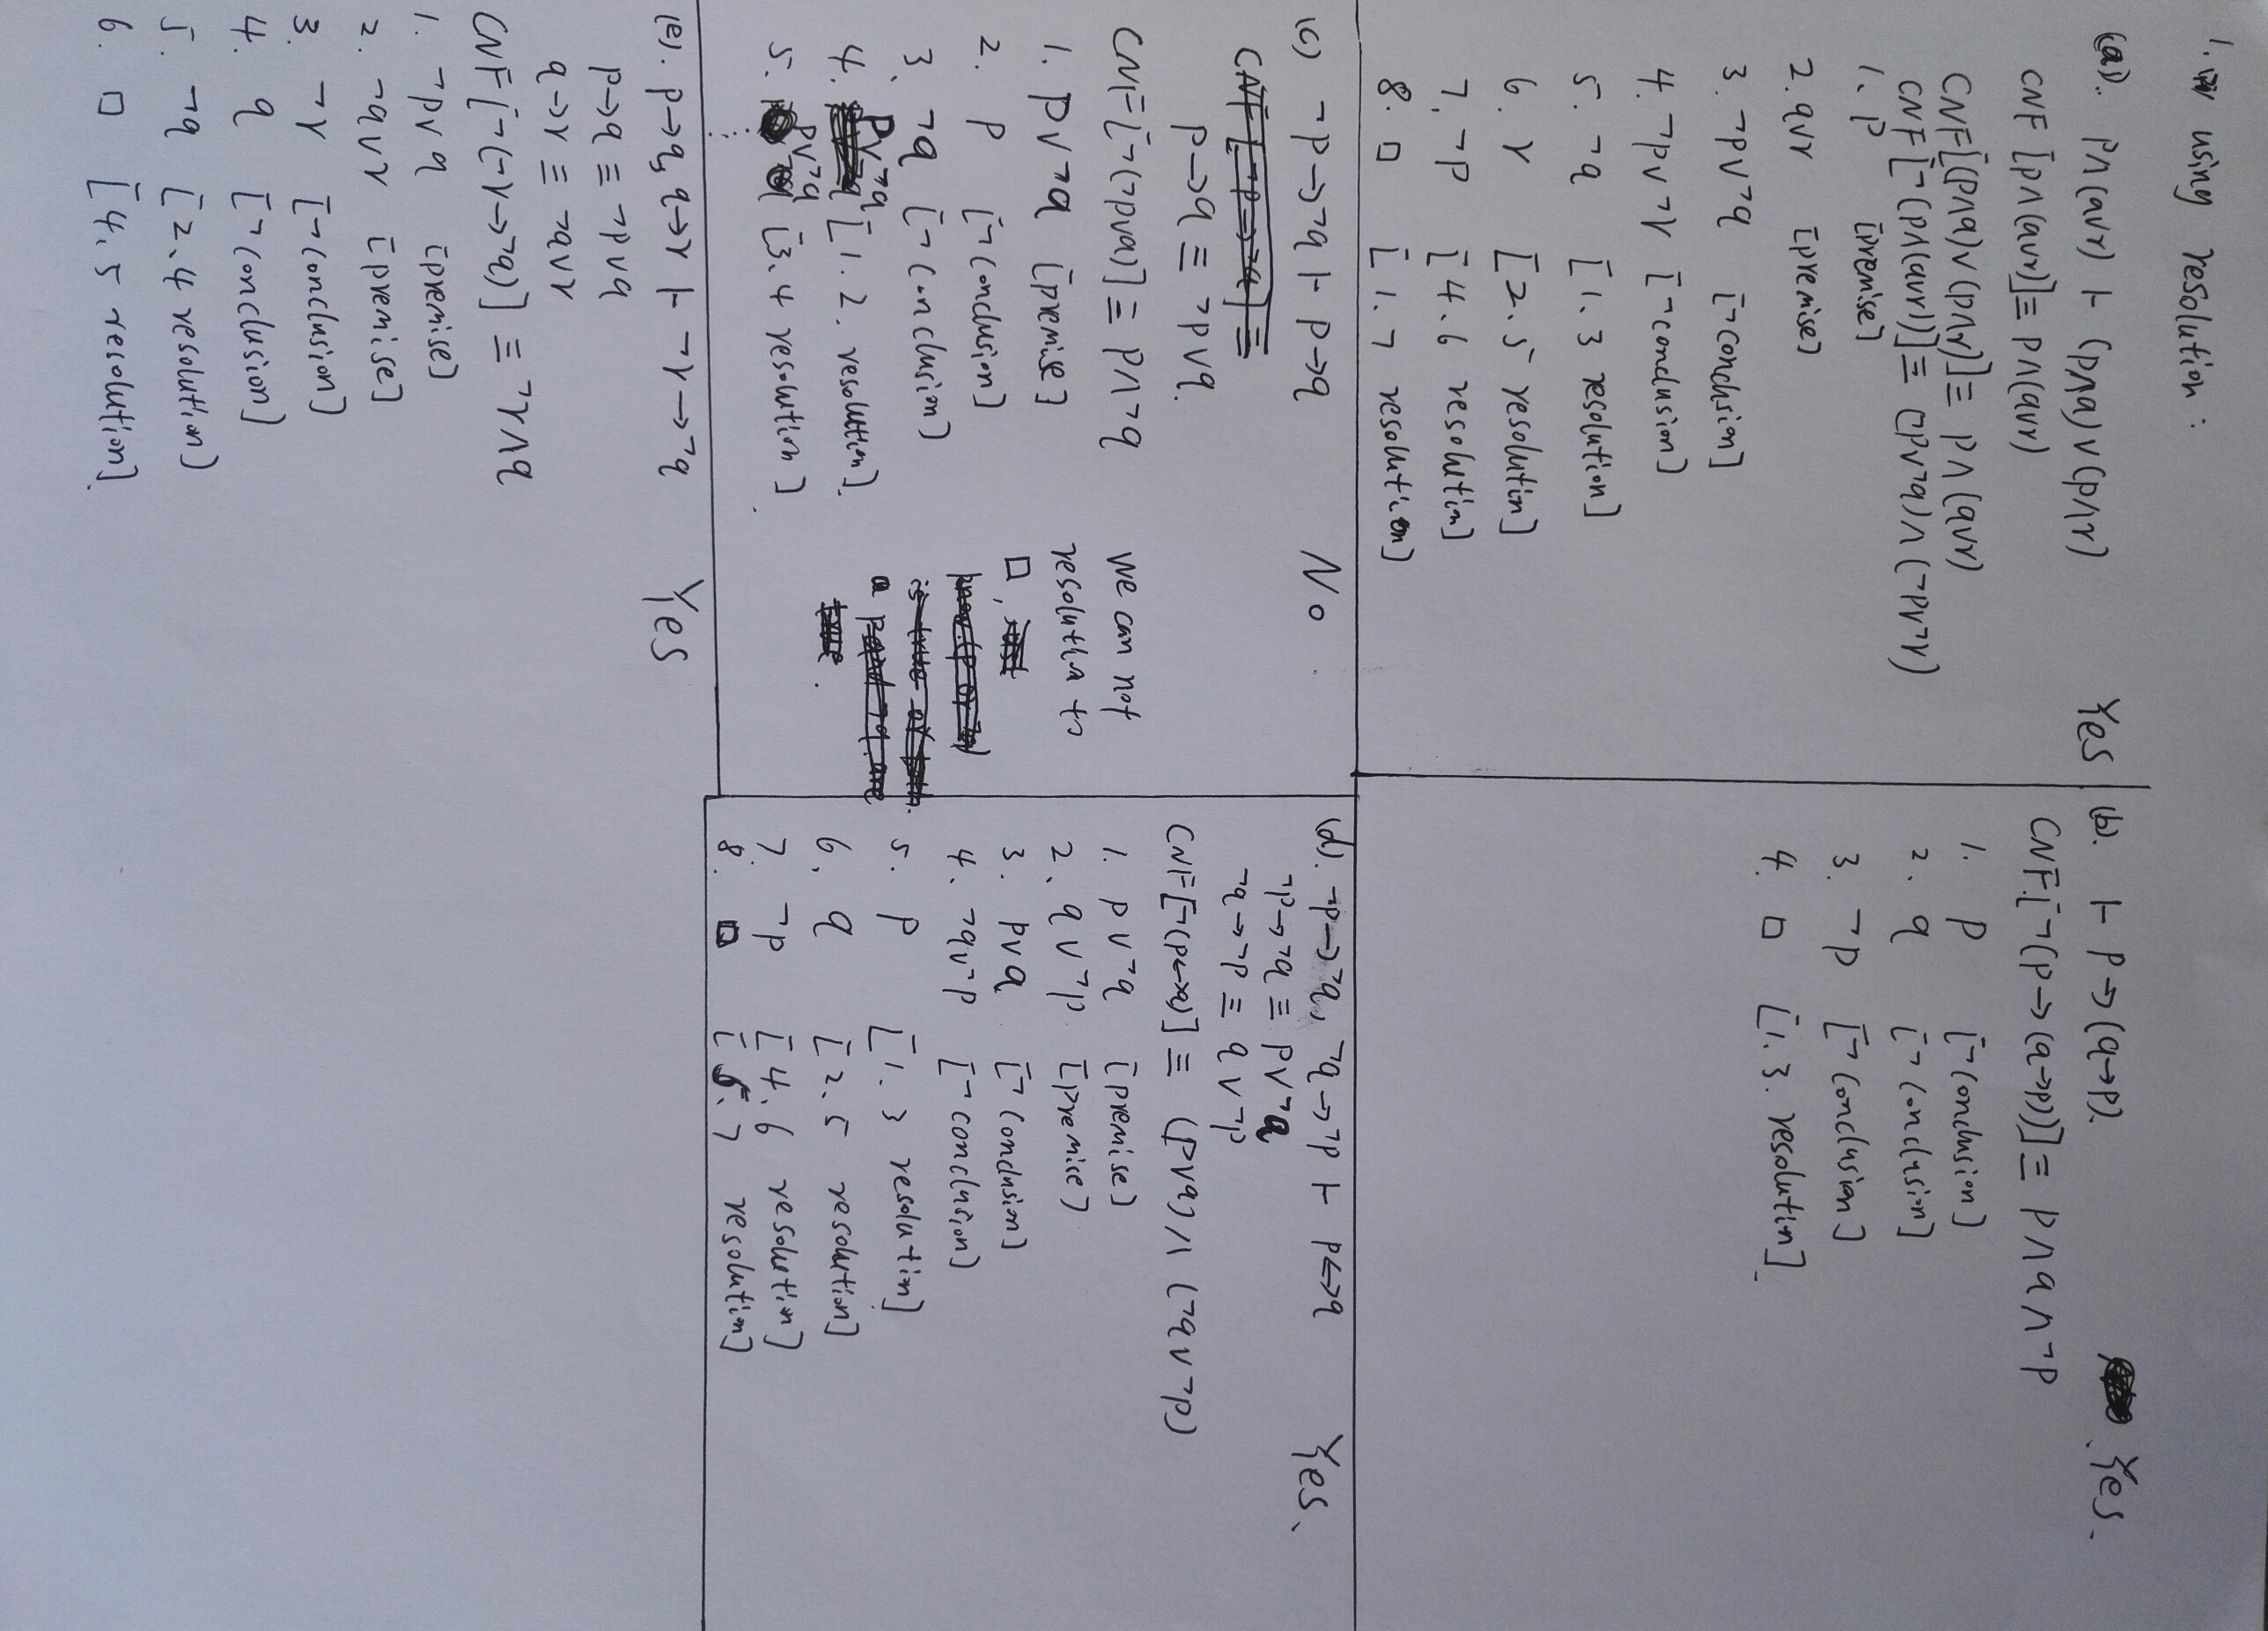 1. using resolution :
(a). P∧(q∨r) ⊢ (p∧q)∨(p∧r) Yes
CNF [p∧(q∨r)]≡ p∧(q∨r)
CNF[(p∧q)∨(p∧r)]≡ p∧(q∨r)
CNF[¬(p∧(q∨r))]≡ (¬p∨¬q)∧(¬p∨¬r)
1. P [premise]
2. q∨r [premise]
3. ¬p∨¬q [¬conclusion]
4. ¬p∨¬r [¬conclusion]
5. ¬q [1.3 resolution]
6. r [2.5 resolutin]
7. ¬p [4.6 resolutin]
8. □ [1.7 resolution]
(b). ⊢ P→(q→p). Yes.
CNF.[¬(p→(q→p))]≡ p∧q∧¬p
1. p [¬conclusion]
2. q [¬conclusion]
3. ¬p [¬conclusion]
4. □ [1.3. resolutin].
(c) ¬p→¬q ⊢ p→q No
CNF [¬p→¬q] ≡
p→q ≡ ¬p∨q.
CNF[¬(¬p∨q)]≡ p∧¬q
1. p∨¬q [premise]
2. p [¬conclusion]
3. ¬q [¬conclusion]
4. p∨¬q [1.2. resolution].
5. p∨¬q [3.4 resolution].
⋮
we can not
resolution to
□,
is true or both.
a p and ¬q are
true.
(d). ¬p→¬q, ¬q→¬p ⊢ p↔q Yes.
¬p→¬q ≡ p∨¬q
¬q→¬p ≡ q∨¬p
CNF[¬(p↔q)] ≡ (p∨q)∧(¬q∨¬p)
1. p∨¬q [premise]
2. q∨¬p [premise]
3. p∨q [¬conclusion]
4. ¬q∨¬p [¬conclusion]
5. p [1.3 resolutin]
6. q [2.5 resolution]
7. ¬p [4.6 resolutin]
8. □ [5.7 resolution]
(e). p→q, q→r ⊢ ¬r→¬q Yes
p→q ≡ ¬p∨q
q→r ≡ ¬q∨r
CNF[¬(¬r→¬q)] ≡ ¬r∧q
1. ¬p∨q [premise]
2. ¬q∨r [premise]
3. ¬r [¬conclusion]
4. q [¬conclusion]
5. ¬q [2.4 resolution]
6. □ [4.5 resolution].